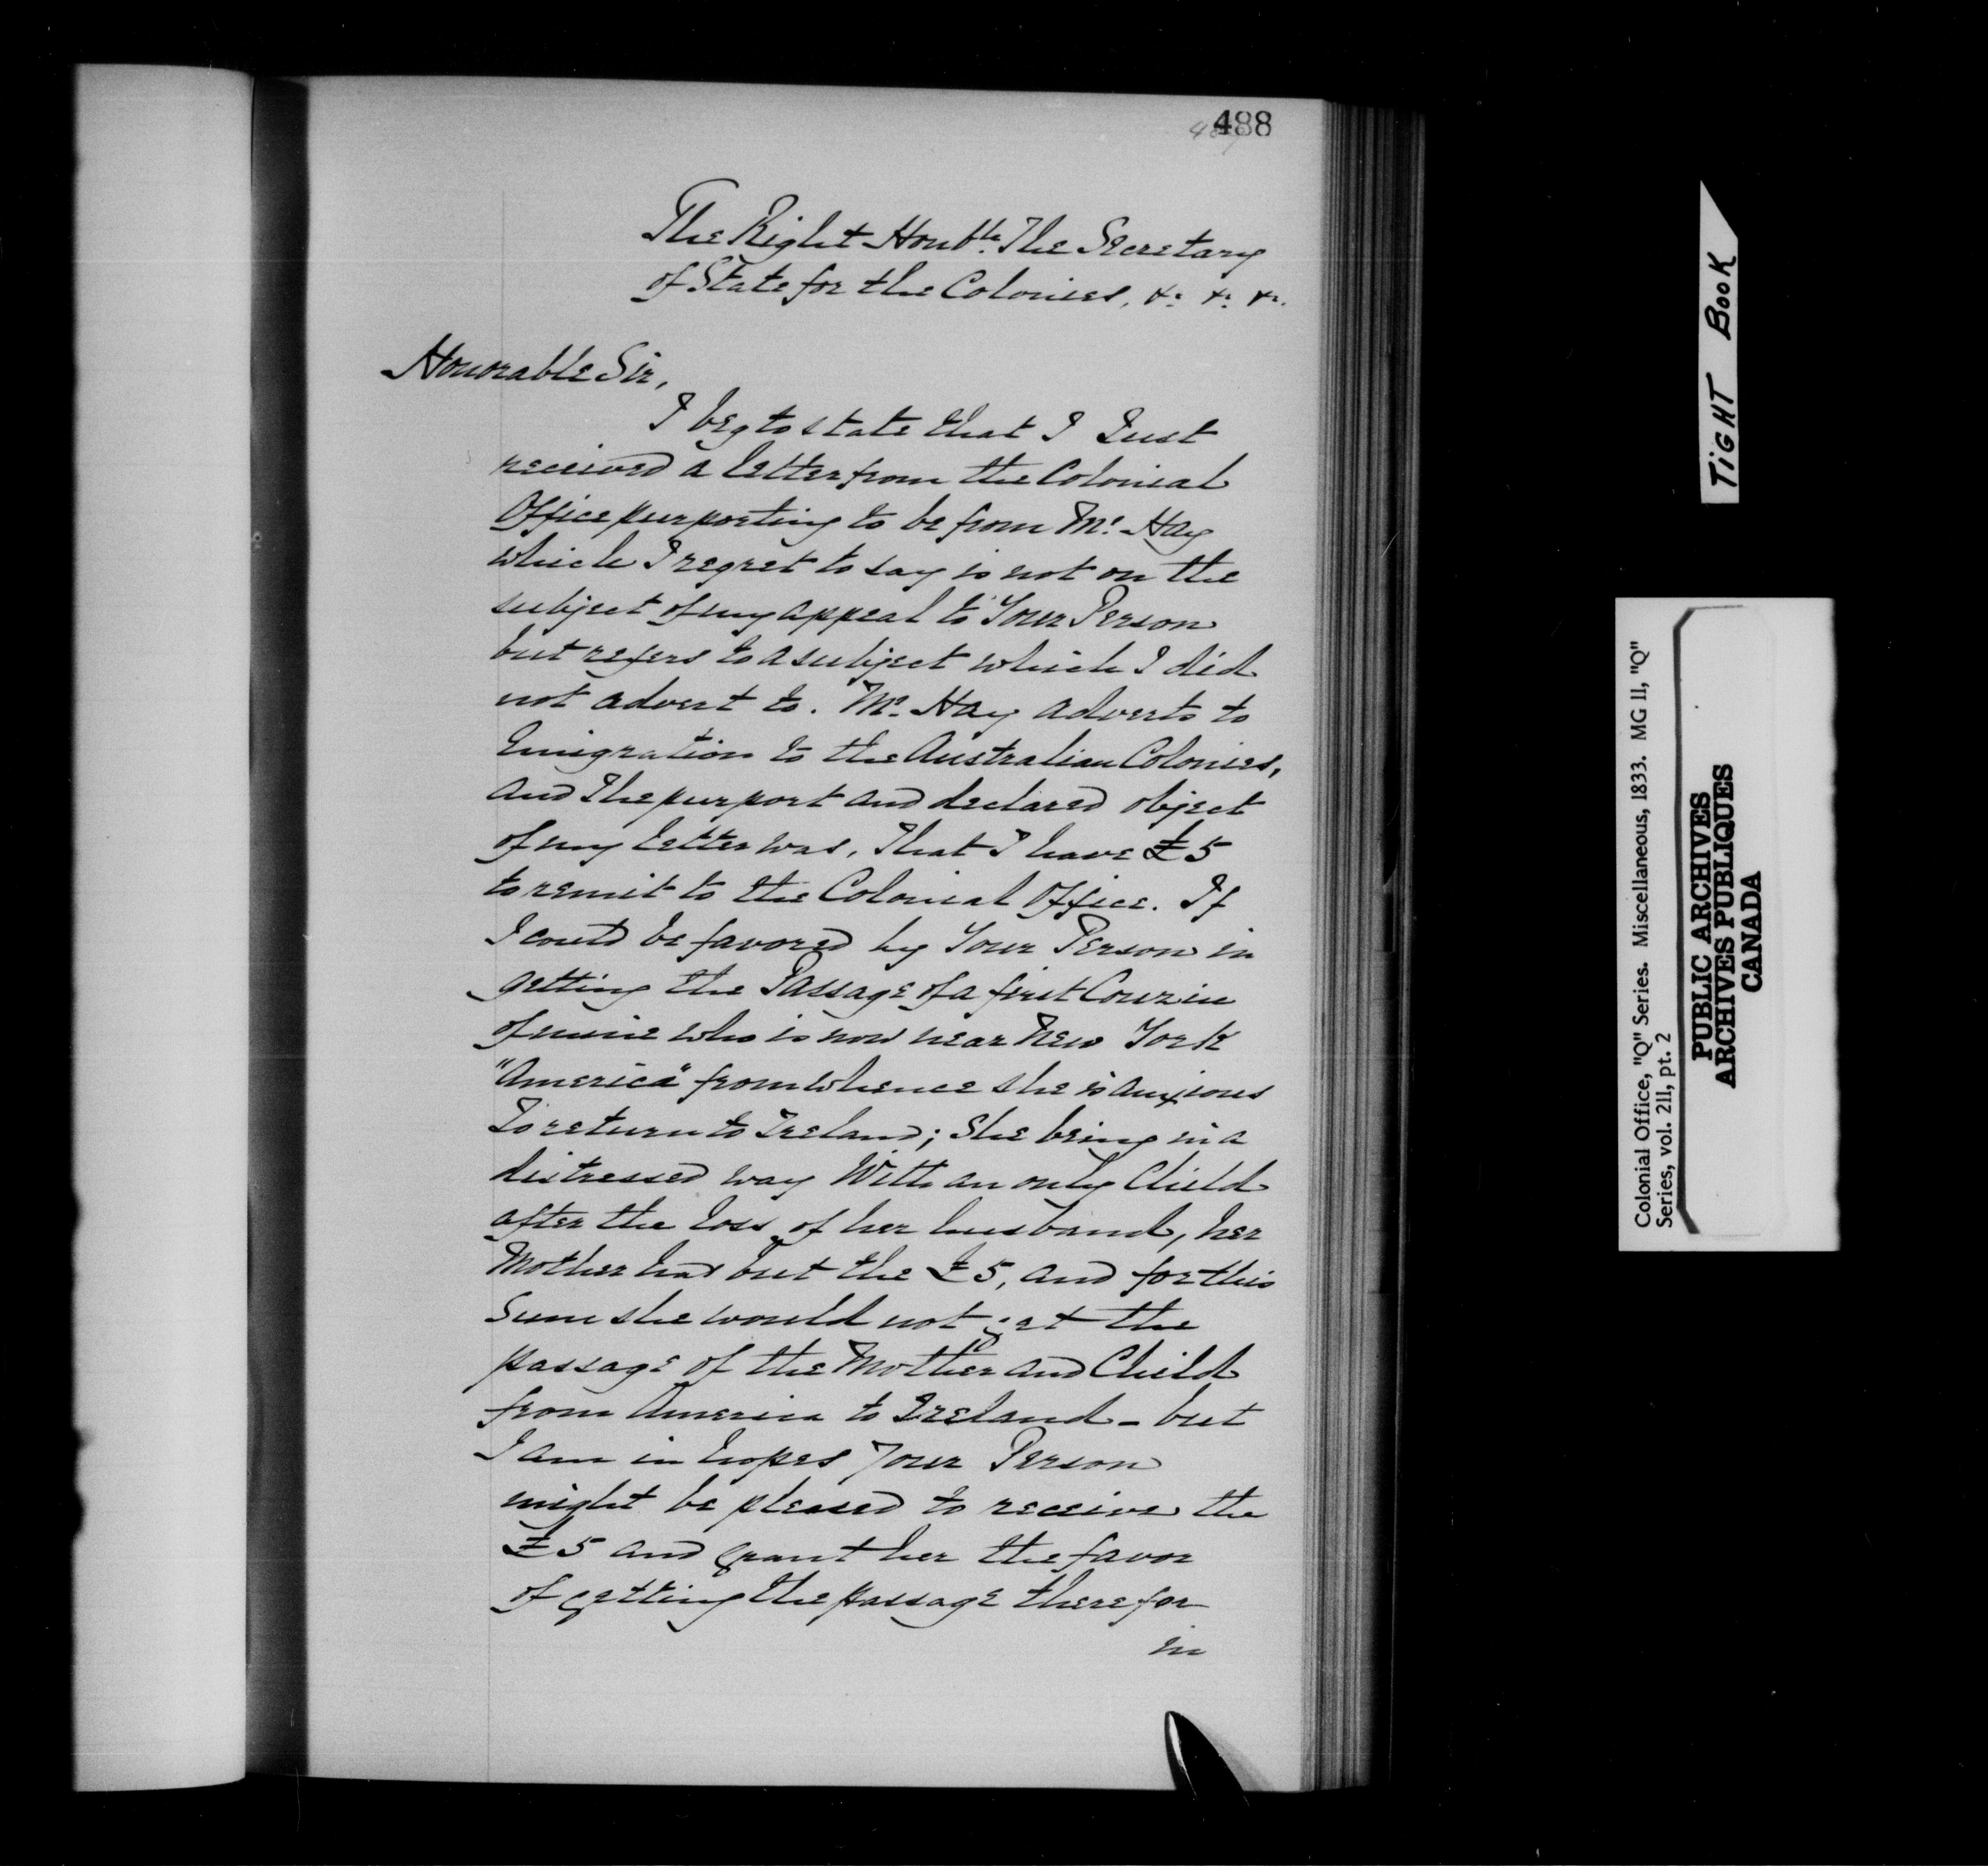 488
The Right Honble. The Secretary
of State for the Colonies, &c. &c. &c.
Honorable Sir,
I beg to state that I Just
received a letter from the Colonial
Office purporting to be from Mr. Hay
which I regret to say is not on the
subject of my appeal to Your Person
but refers to a subject which I did
not advert to. Mr. Hay adverts to
Emigration to the Australian Colonies,
and The purport and declared object
of my letter was, That I have £5
to remit to the Colonial Office. If
I could be favored by Your Person in
getting the Passage of a first Couzin
of mine who is now near New York
"America" from whence she is anxious
To return to Ireland; She being in a
distressed way With an only Child
after the loss of her husband, her
Mother has but the £5, and for this
Sum she would not get the
passage of the Mother and Child
from America to Ireland - but
I am in hopes Your Person
might be pleased to receive the
£5 and grant her the favor
of getting the passage therefor
in
TIGHT BOOK
Colonial Office, "Q" Series. Miscellaneous, 1833. MG 11, "Q"
Series, vol. 211, pt. 2
PUBLIC ARCHIVES
ARCHIVES PUBLIQUES
CANADA